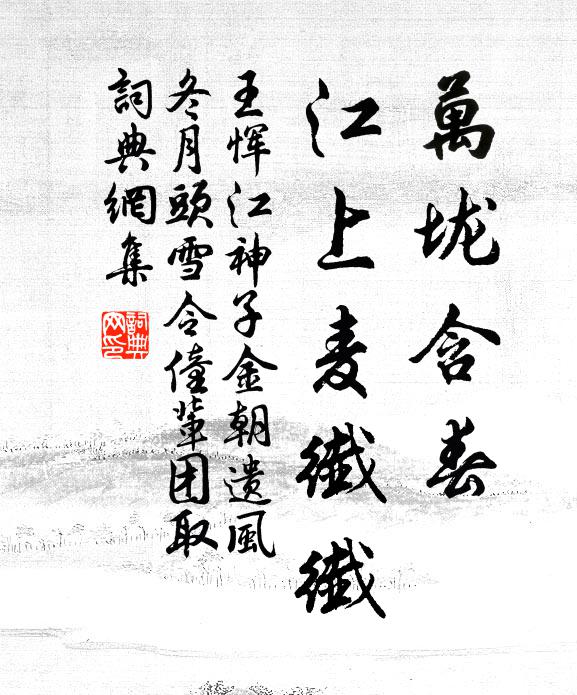 萬垅含春
江上麦纖纖
王惲江神子金朝遗風
冬月頭雪令僮輩团取
詞典網集
詞典网印